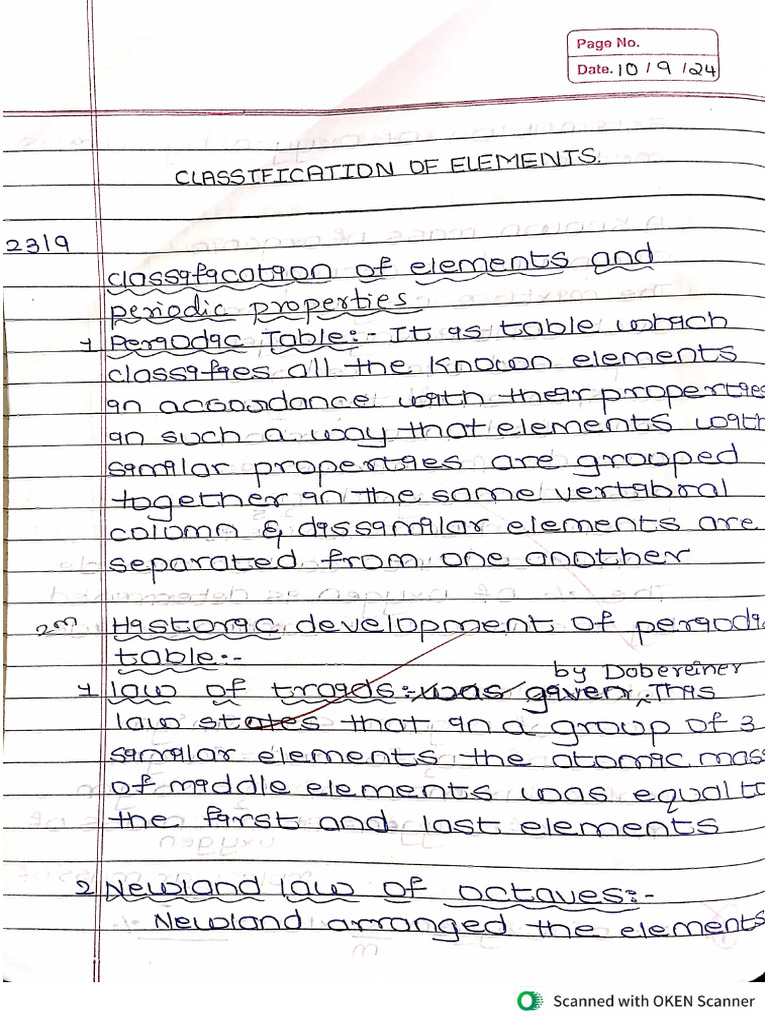 Page No.
Date. 10 / 9 / 24
CLASSIFICATION OF ELEMENTS.
23/9
classification of elements and
periodic properties
1 Periodic Table:- It is table which
classifies all the known elements
in accordance with their properties
in such a way that elements with
similar properties are grouped
together in the same vertibral
column & dissimilar elements are
separated from one another
2m Historic development of periodic
table:-
by Dobereiner
1 law of triads:- was given, This
law states that in a group of 3
similar elements the atomic mass
of middle elements was equal to
the first and last elements
2 Newland law of octaves:-
Newland arranged the elements
Scanned with OKEN Scanner